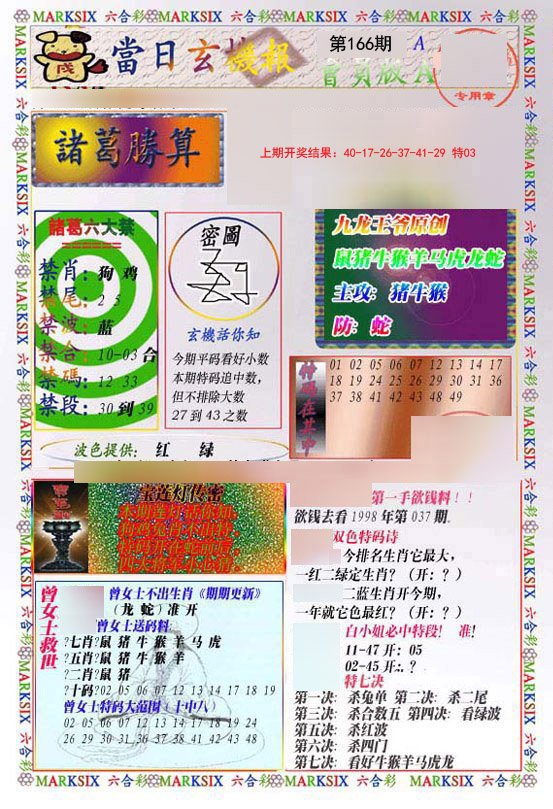 MARKSIX 六合彩 MARKSIX 六合彩 MARKSIX 六合彩 MARKSIX 六合彩
當日玄機報
第166期
A
會員版A
专用章
諸葛勝算
上期开奖结果: 40-17-26-37-41-29 特03
諸葛六大禁
禁肖: 狗 鸡
禁尾: 2 5
禁波: 蓝
禁合: 10-03 合
禁碼: 12 33
禁段: 30 到 39
密圖
玄機話你知
今期平码看好小数
本期特码追中数,
但不排除大数
27 到 43 之数
九龙王爷原创
鼠猪牛猴羊马虎龙蛇
主攻: 猪牛猴
防: 蛇
特码在其中
01 02 05 06 07 12 13 14 17
18 19 24 25 26 29 30 31 36
37 38 41 42 43 48 49
波色提供: 红 绿
宝莲灯传密
第一手欲钱料!!
欲钱去看 1998 年第 037 期.
双色特码诗
今排名生肖它最大,
一红二绿定生肖? (开: ? )
二蓝生肖开今期,
一年就它色最红? (开: ? )
白小姐必中特段! 准!
11-47 开: 05
02-45 开:. ?
特七决
第一决: 杀兔单 第二决: 杀二尾
第三决: 杀合数五 第四决: 看绿波
第五决: 杀红波
第六决: 杀四门
第七决: 看好牛猴羊马虎龙
曾女士救世
曾女士不出生肖《期期更新》
(龙 蛇) 准 开
曾女士送码料:
?七肖?鼠 猪 牛 猴 羊 马 虎
?五肖?鼠 猪 牛 猴 羊
?二肖?鼠 猪
?十码?02 05 06 07 12 13 14 17 18 19
曾女士特码大范围 (十中八)
02 05 06 07 12 13 14 17 18 19 24
26 29 30 31 36 37 38 41 42 43 48
MARKSIX 六合彩 MARKSIX 六合彩 MARKSIX 六合彩 MARKSIX 六合彩